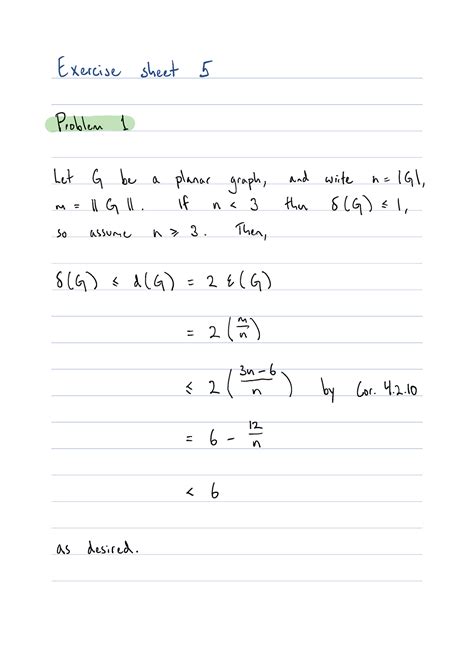 Exercise sheet 5
Problem 1
Let G be a planar graph, and write n = |G|,
m = ||G||. If n < 3 then δ(G) ≤ 1,
so assume n ≥ 3. Then,
δ(G) ≤ d(G) = 2 ε(G)
= 2 (m/n)
≤ 2 ((3n-6)/n) by Cor. 4.2.10
= 6 - 12/n
< 6
as desired.